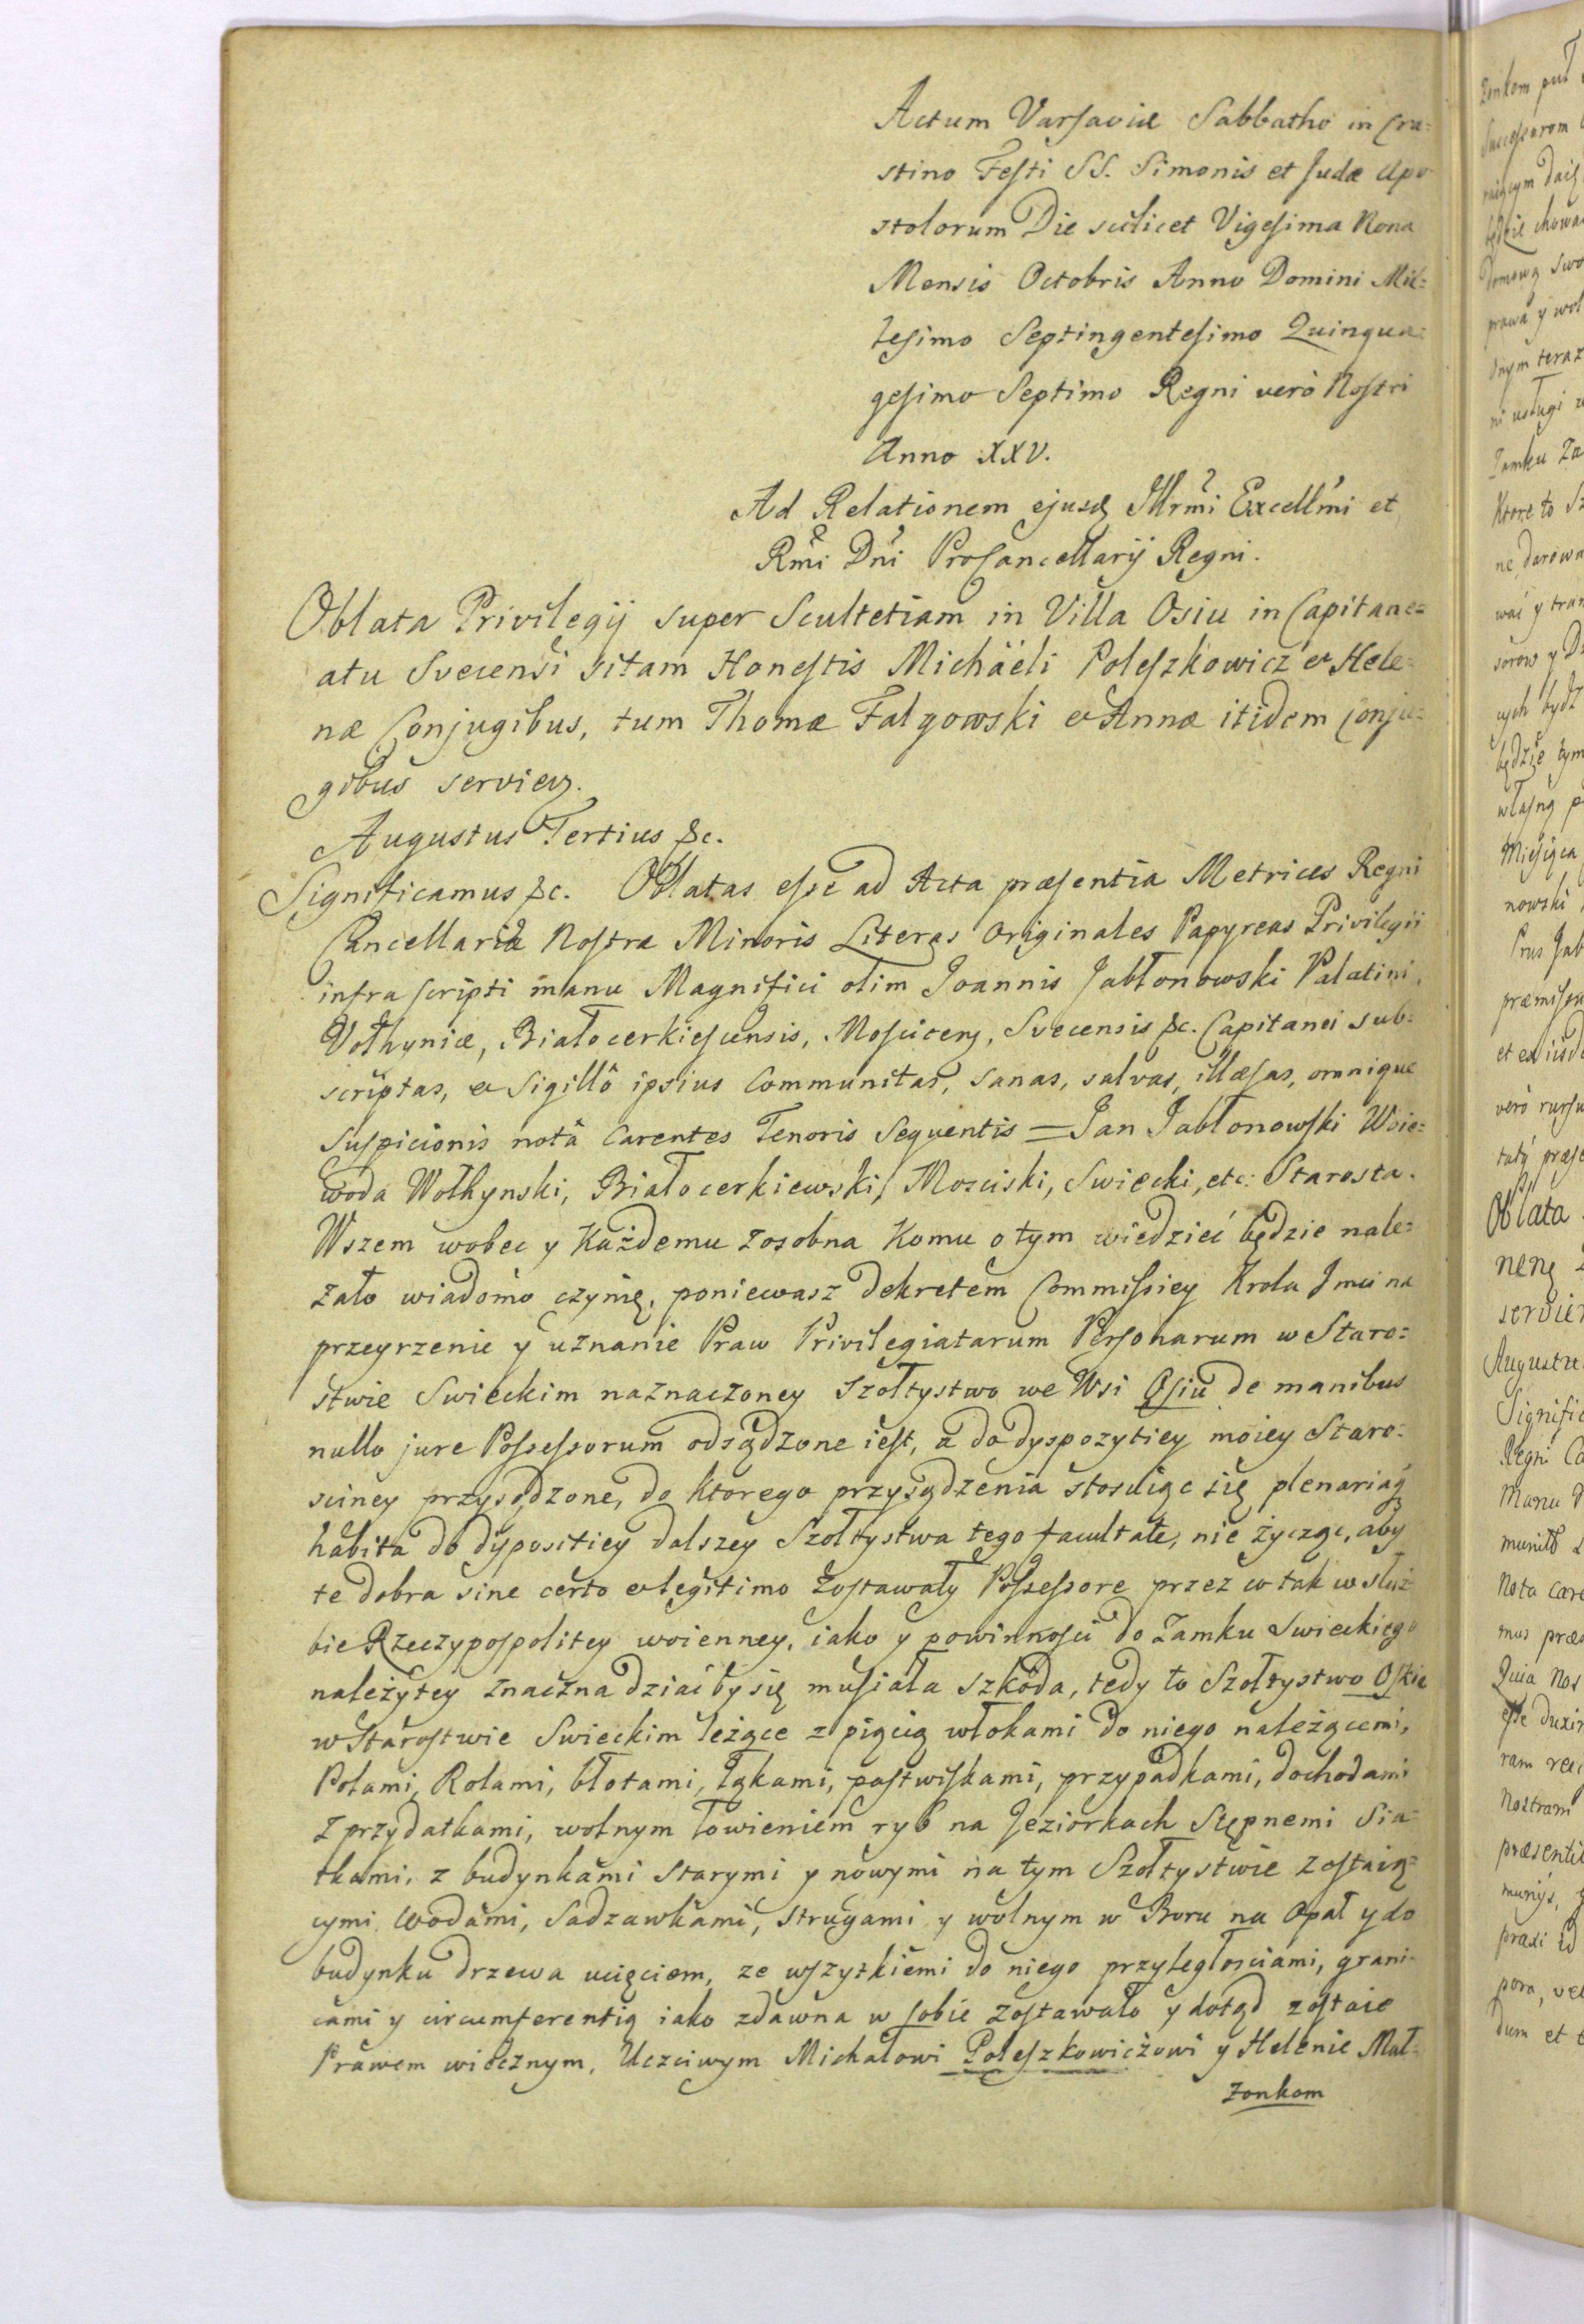 Actum Varsaviæ Sabbatho in Cra=
stino Festi SS. Simonis et Judæ Apo
stolorum Die scilicet Vigesima Nona
Mensis Octobris Anno Domini Mil=
lesimo Septingentesimo Quinqua=
gesimo Septimo Regni verò Nostri
Anno XXV.
Ad Relationem ejusq Illrmi Excellmi et
Rmi Dni ProCancellarij Regni.
Oblata Privilegij super Scultetiam in Villa Osiu in Capitane=
atu Svecensi sitam Honestis Michäeli Poleszkowicz et Hele=
næ Conjugibus, tum Thomæ Falgowski et Annæ itidem Conju=
gibus servien.
Augustus Tertius &c.
Significamus &c. Oblatas esse ad Acta præsentia Metrices Regni
Cancellariæ Nostræ Minoris Literas Originales Papyreas Privilegii
infra scripti manu Magnifici olim Joannis Jabłonowski Palatini
Vołhyniæ, Białocerkiescensis, Moscicens, Svecensis &c. Capitanei sub=
scriptas, et Sigillô ipsius Communitas, sanas, salvas, illæsas, omnique
suspicionis notâ Carentes Tenoris Sequentis = Jan Jabłonowski Woie=
woda Wołhynski, Białocerkiewski, Mosciski, Swiecki, etc: Starosta.
Wszem wobec y Każdemu zosobna Komu o tym wiedzieć będzie nale=
żało wiadomo czynię, poniewasz dekretem Commissiey Krola Jmci na
przeyrzenie y uznanie Praw Privilegiatarum Personarum w Staro=
stwie Swieckim naznaczoney Szołtystwo we Wsi Osiu de manibus
nullo jure Possessorum odsądzone iest, a do dyspozytiey moiey Staro=
sciney przysądzone, do ktorego przysądzenia stosuiąc się plenariaq
habita do dypositiey dalszey Szołtystwa tego facultate, nie życząc, aby
te dobra sine certo et legitimo zostawały Possessore przez co tak w służ
bie Rzeczypospolitey woienney, iako y powinnosci do Zamku Swieckiego
należytey znaczna dziać by się musiała szkoda, tedy to Szołtystwo Oskie
w Starostwie Swieckim leżące z pięcią włokami do niego należącemi,
Polami, Rolami, błotami, łąkami, pastwiskami, przypadkami, dochodami
z przydatkami, wolnym łowieniem ryb na Jeziorkach Stępnemi Sia=
tkami, z budynkami Starymi y nowymi na tym Szołtystwie zostaią=
cymi, wodami, Sadzawkami, strugami y wolnym w Boru na Opał y do
budynku drzewa ucięciem, ze wszyzkiemi do niego przyległosciami, grani=
cami y circumferentią iako zdawna w sobie zostawało y dotąd zostaie
Prawem wiecznym, Uczciwym Michałowi Poleszkowiczowi y Helenie Mał=
żonkom